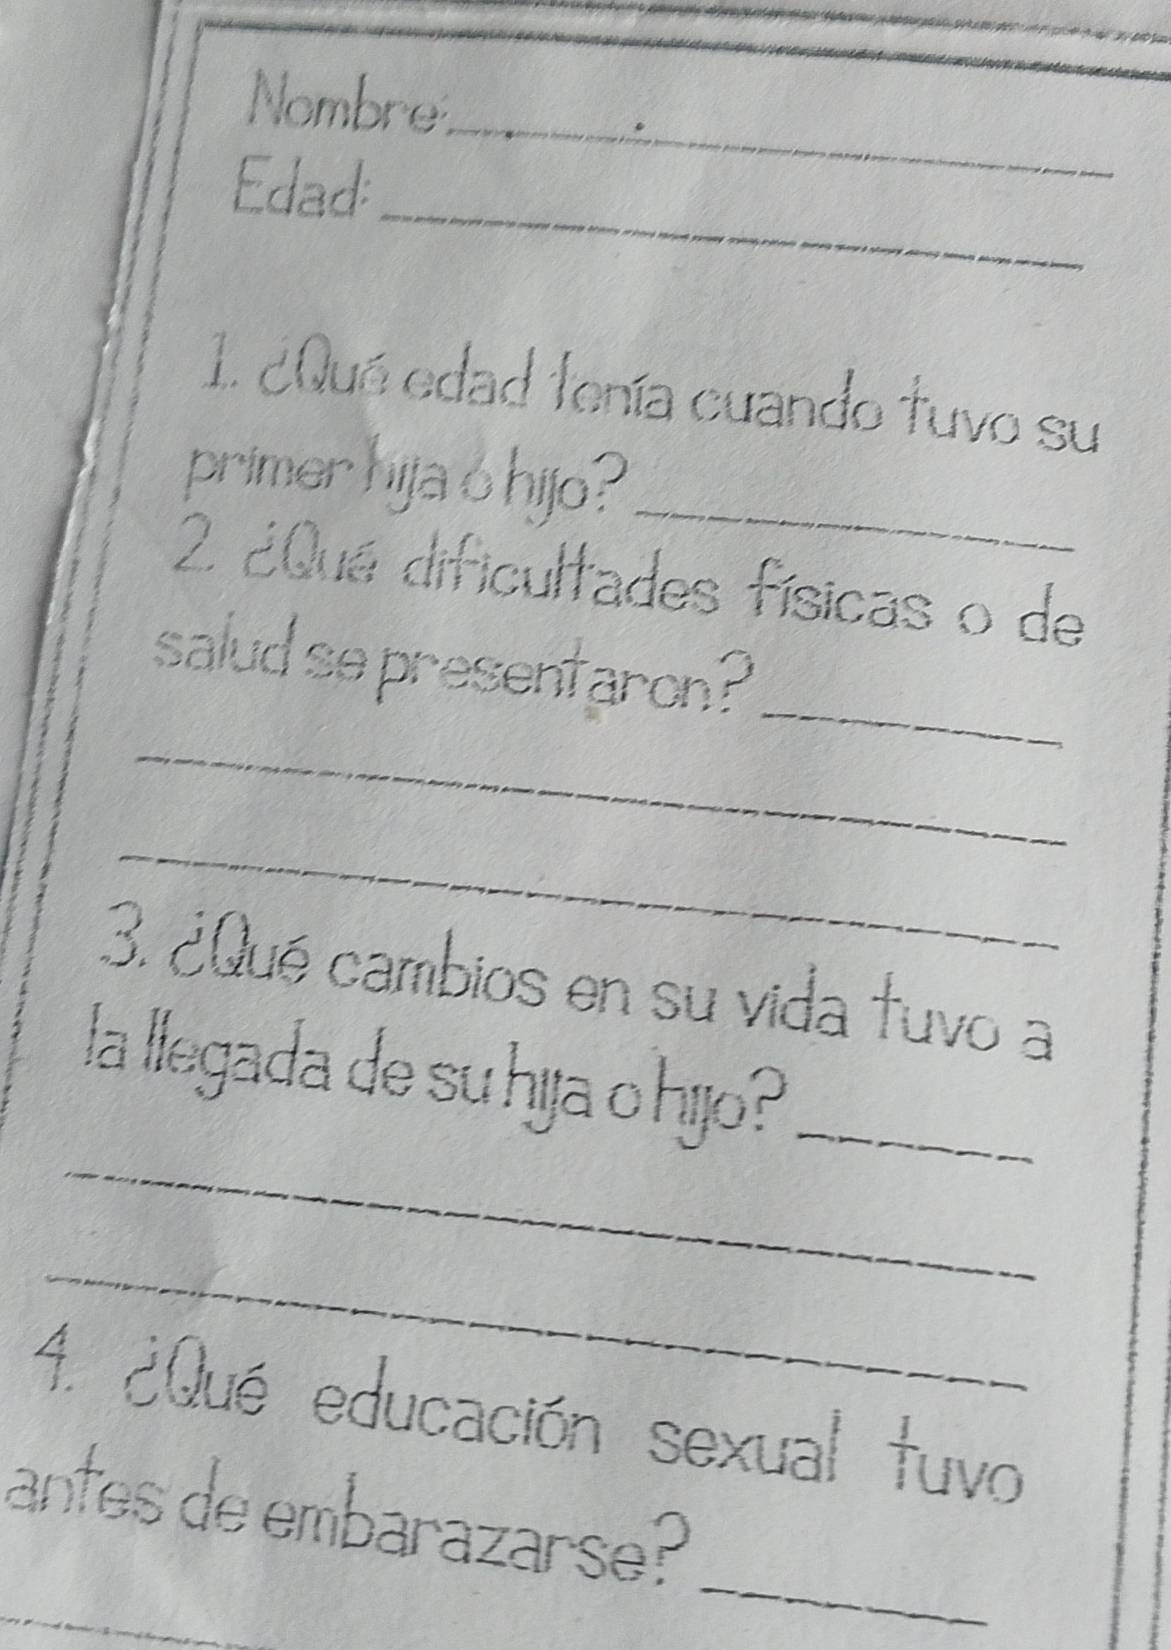 Nombre:
Edad:
1. ¿Qué edad tenía cuando tuvo su
primer hija ó hijo?
2. ¿Qué dificultades físicas o de
salud se presentaron?
3. ¿Qué cambios en su vida tuvo a
la llegada de su hija o hijo?
4. ¿Qué educación sexual tuvo
antes de embarazarse?